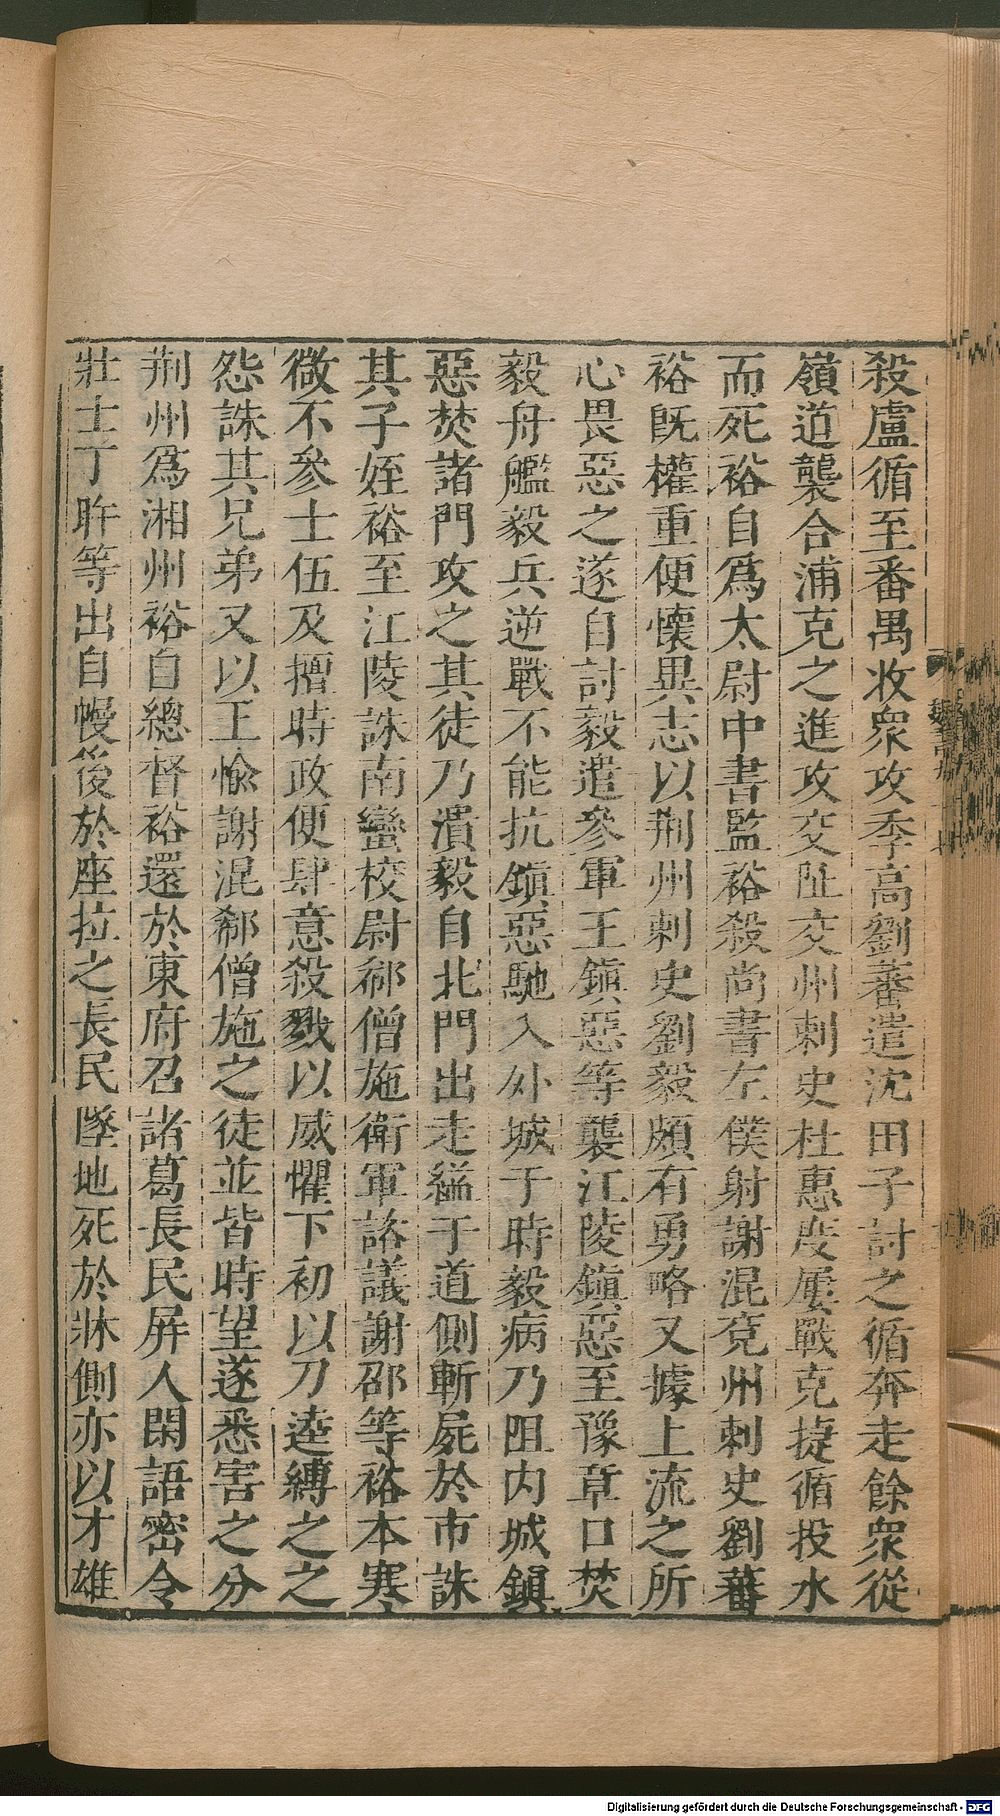 殺盧循至番禺收衆攻季高劉蕃遣沈田子討之循奔走餘衆從
嶺道襲合浦克之進攻交阯交州刺史杜惠度屢戰克捷循投水
而死裕自爲太尉中書監裕殺尚書左僕射謝混兗州刺史劉蕃
裕旣權重便懷異志以荆州刺史劉毅頗有勇略又據上流之所
心畏惡之遂自討毅遣參軍王鎭惡等襲江陵鎭惡至豫章口焚
毅舟艦毅兵逆戰不能抗鎭惡馳入外城于時毅病乃阻内城鎭
惡焚諸門攻之其徒乃潰毅自北門出走縊于道側斬屍於市誅
其子姪裕至江陵誅南蠻校尉郗僧施衛軍諮議謝邵等裕本寒
微不參士伍及擅時政便肆意殺戮以威懼下初以刀逵縛之之
怨誅其兄弟又以王愉謝混郗僧施之徒並皆時望遂悉害之分
荆州爲湘州裕自總督裕還於東府召諸葛長民屏人閑語密令
壯士丁旿等出自幔後於座拉之長民墜地死於牀側亦以才雄
Digitalisierung gefördert durch die Deutsche Forschungsgemeinschaft - DFG